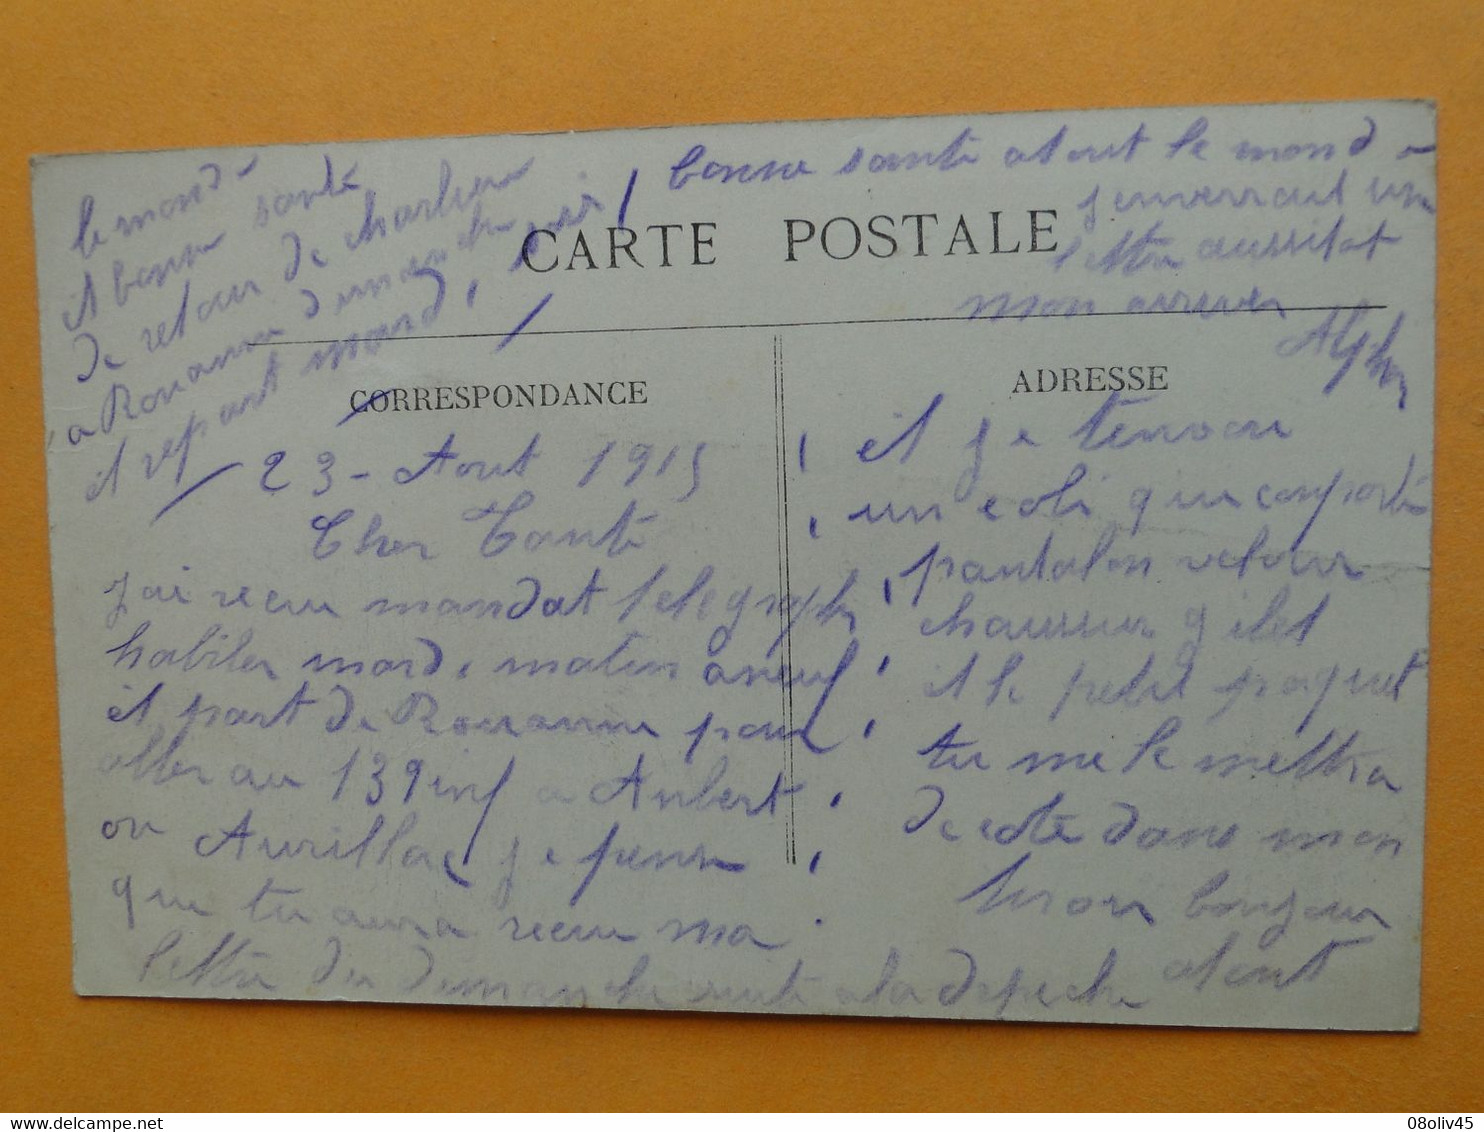 CARTE POSTALE
CORRESPONDANCE
23 - Aout 1915
Cher Tante
j'ai recu mandat telegraph
habiler mardi matin a neuf
et part de Rouanne pour
aller au 139 inf a Anbert
ou Aurillac je pense
que tu aura recu ma
lettre du dimanche suite a la depeche
ADRESSE
et je
un coli que comporte
pantalon velour
chaussur gilet
et le petit paquet
tu me le mettra
de coté dans mon
bonjour
a tout
le monde
et bonne santé
de retour de charlieu
a Rouanne dimanche soir
et repart mardi
bonne santé a tout le monde
j'enverrait une
lettre aussitot
mon arriver
Alph
08oliv45